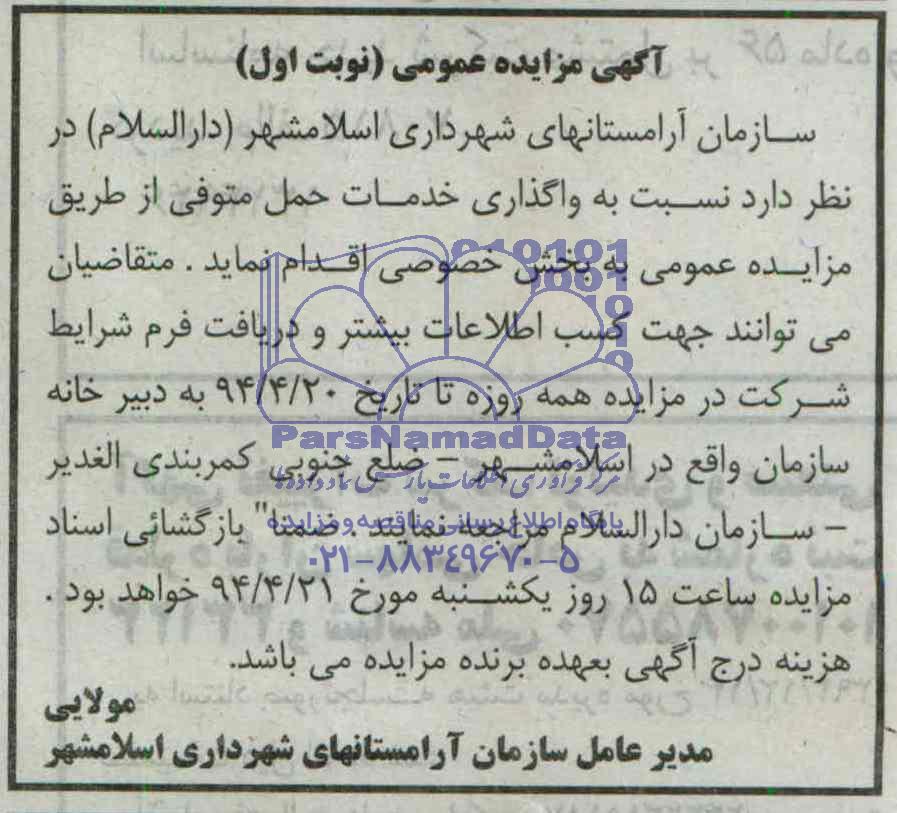 آگهی مزایده عمومی (نوبت اول)
سازمان آرامستانهای شهرداری اسلامشهر (دارالسلام) در
نظر دارد نسبت به واگذاری خدمات حمل متوفی از طریق
مزایده عمومی به بخش خصوصی اقدام نماید . متقاضیان
می توانند جهت کسب اطلاعات بیشتر و دریافت فرم شرایط
شرکت در مزایده همه روزه تا تاریخ ۹۴/۴/۲۰ به دبیر خانه
ParsNamadData
سازمان واقع در اسلامشهر – ضلع جنوبی کمربندی الغدیر
مرکز فرآوری اطلاعات پارس نماد داده ها
– سازمان دارالسلام مراجعه نمایند . ضمنا" بازگشائی اسناد
پایگاه اطلاع رسانی مناقصه و مزایده
۰۲۱-۸۸۳۴۹۶۷۰-۵
مزایده ساعت ۱۵ روز یکشنبه مورخ ۹۴/۴/۲۱ خواهد بود .
هزینه درج آگهی بعهده برنده مزایده می باشد.
مولایی
مدیر عامل سازمان آرامستانهای شهرداری اسلامشهر